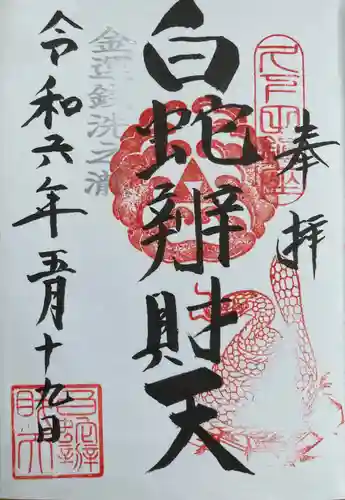 奉拝
白蛇辨財天
金運銭洗之滝
令和六年五月十九日